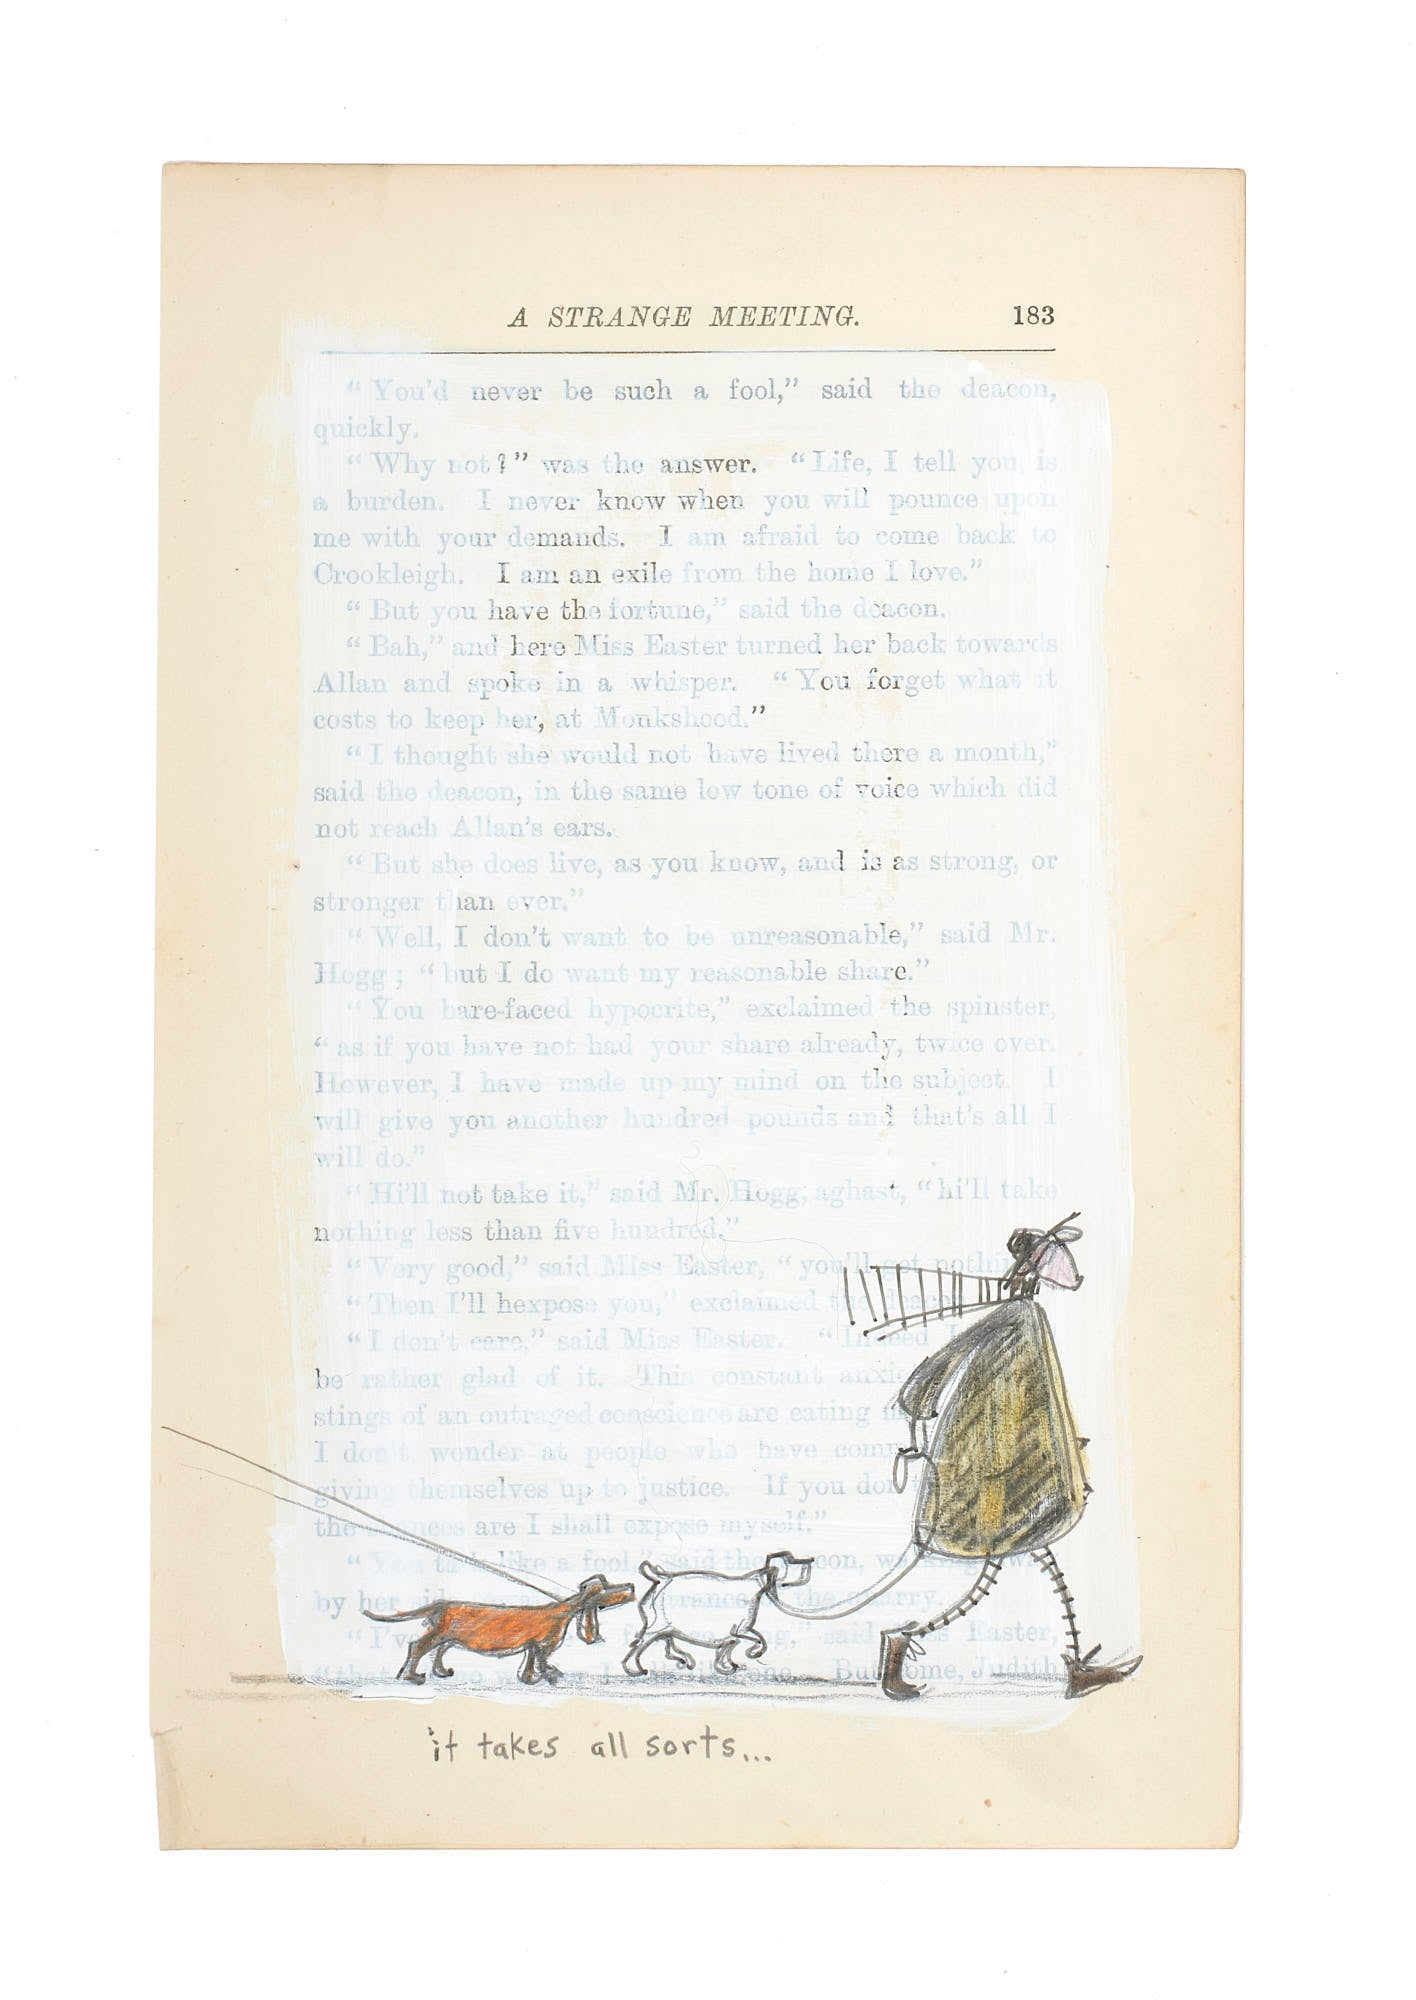 A STRANGE MEETING. 183
“ You'd never be such a fool,” said the deacon,
quickly.
“ Why not ? ” was the answer. “ Life, I tell you, is
a burden. I never know when you will pounce upon
me with your demands. I am afraid to come back to
Crookleigh. I am an exile from the home I love.”
“ But you have the fortune,” said the deacon.
“ Bah,” and here Miss Easter turned her back towards
Allan and spoke in a whisper. “ You forget what it
costs to keep her, at Monkshood.”
“ I thought she would not have lived there a month,”
said the deacon, in the same low tone of voice which did
not reach Allan's ears.
“ But she does live, as you know, and is as strong, or
stronger than ever.”
“ Well, I don't want to be unreasonable,” said Mr.
Hogg ; “ but I do want my reasonable share.”
“ You bare-faced hypocrite,” exclaimed the spinster,
“ as if you have not had your share already, twice over.
However, I have made up my mind on the subject. I
will give you another hundred pounds and that's all I
will do.”
“ Hi'll not take it,” said Mr. Hogg, aghast, “ hi'll take
nothing less than five hundred.”
“ Very good,” said Miss Easter, “ you'll get nothing
“ Then I'll hexpose you,” exclaimed the deacon
“ I don't care,” said Miss Easter. “ Indeed I
be rather glad of it. This constant
stings of an outraged conscience are eating
I don't wonder at people who have
giving themselves up to justice. If you don't
the are I shall expose myself.”
“ You talk like a fool,” said the deacon, walking
by her side entrance the quarry.
“ I've said Miss Easter,
“ that But come, Judith
it takes all sorts...